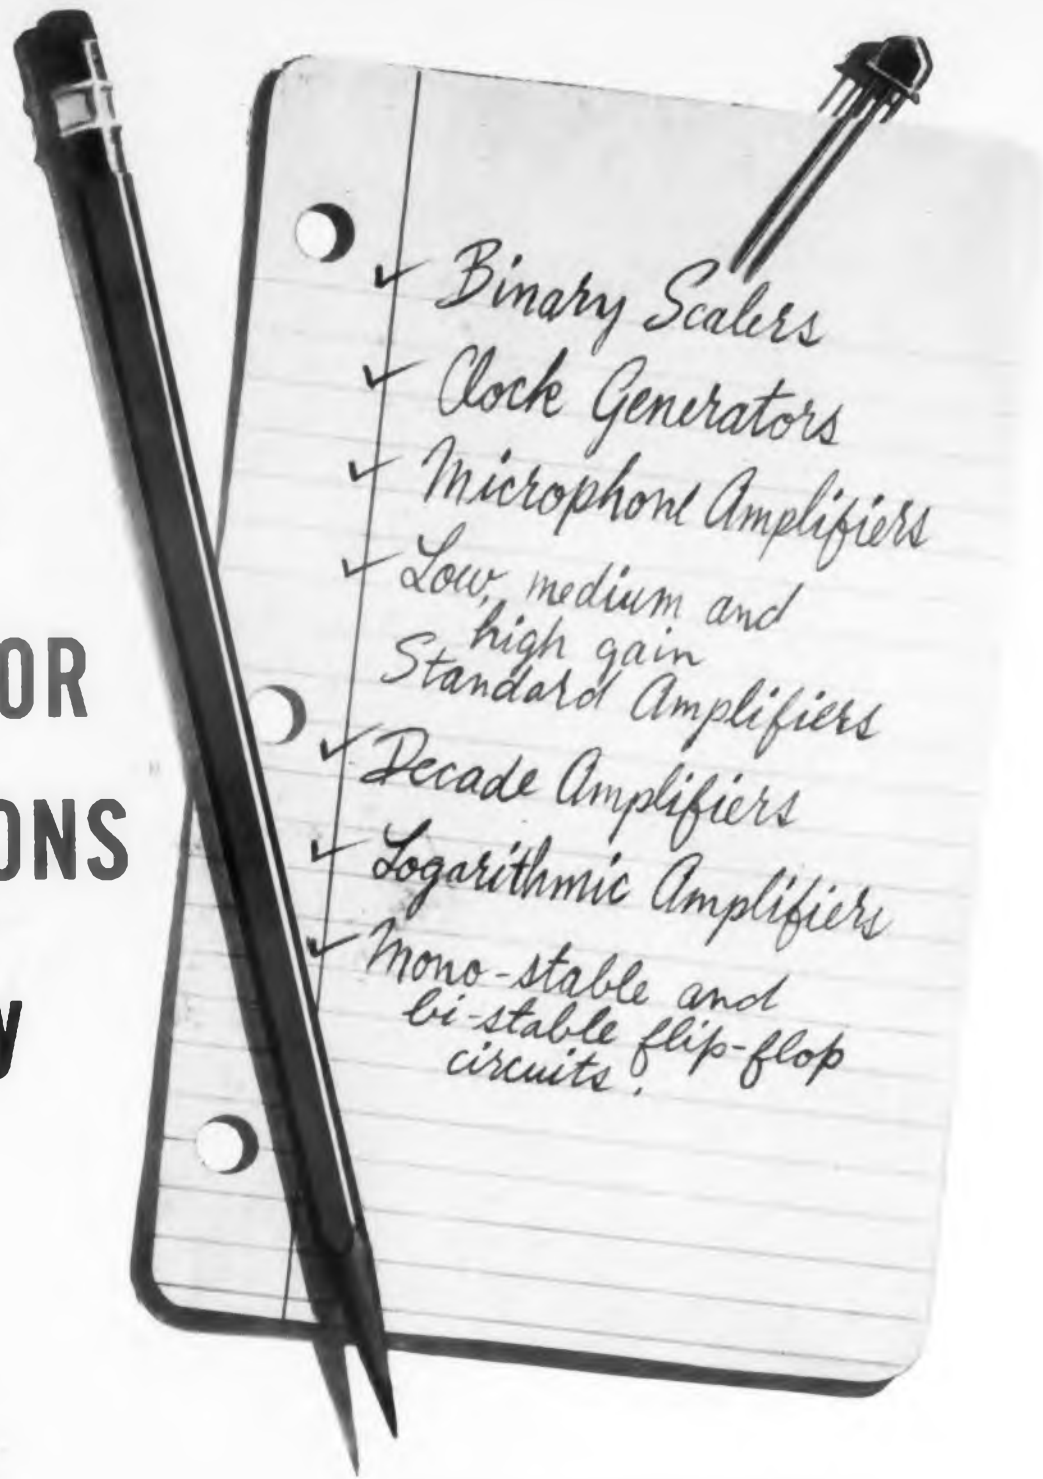 OR
ONS
✓ Binary Scalers
✓ Clock Generators
✓ Microphone Amplifiers
✓ Low, medium and
high gain
Standard Amplifiers
✓ Decade Amplifiers
✓ Logarithmic Amplifiers
✓ Mono-stable and
bi-stable flip-flop
circuits.